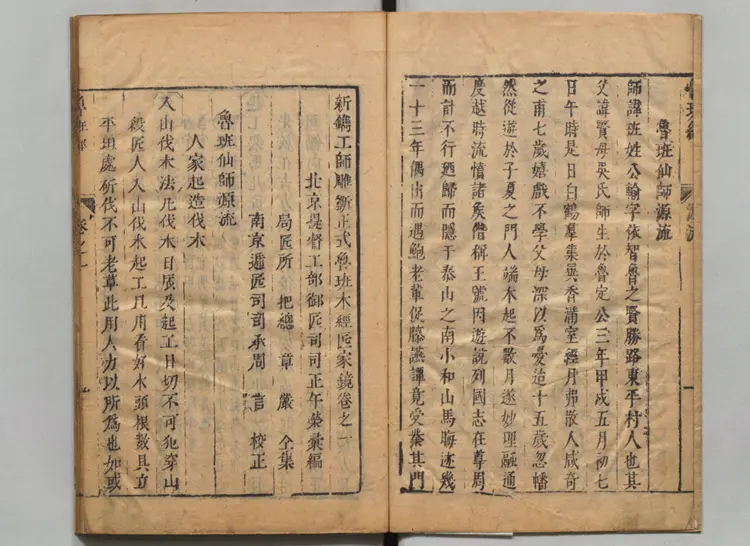 魯班仙師源流
師諱班姓公輸字依智魯之賢勝路東平村人也其
父諱賢母吳氏師生於魯定公三年甲戌五月初七
日午時是日白鶴羣集異香滿室經月弗散人咸奇
之甫七歲嬉戲不學父母深以爲憂迨十五歲忽幡
然從遊於子夏之門人端木起不數月遂妙理融通
度越時流憤諸矦僭稱王號因遊說列國志在尊周
而計不行廼歸而隱于泰山之南小和山焉晦迹幾
一十三年偶出而遇鮑老輩促膝讌譚竟受業其門
新鐫工師雕斲正式魯班木經匠家鏡卷之一
北京提督工部御匠司司正午榮彙編
局匠所 把總 章 嚴 仝集
南京遞匠司司承周 言 校正
魯班仙師源流
人家起造伐木
入山伐木法凡伐木日辰及起工日切不可犯穿山
殺匠人入山伐木起工且用看好木頭根數具立
平坦處斫伐不可老草此用人力以所爲也如或
卷之一